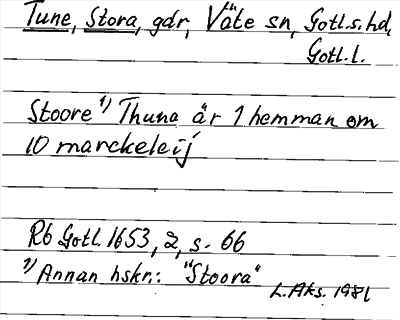 Tune, Stora, gdr, Väte sn, Gotl.s.hd,
Gotl.l.
Stoore 1) Thuna är 1 hemman om
10 marckeleij
Rb Gotl. 1653, 2, s. 66
1) Annan hskr.: "Stoora"
L.Aks. 1981